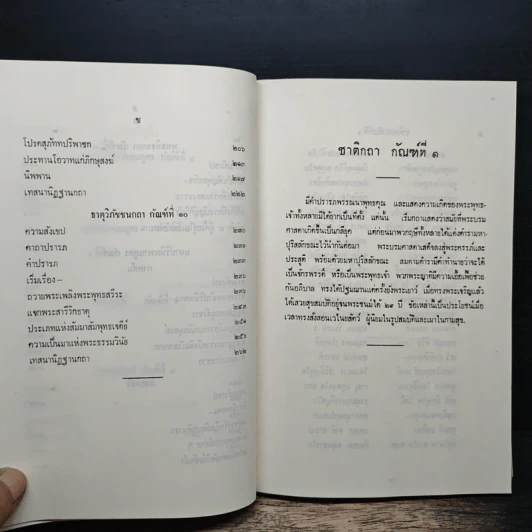 ข
โปรดสุภัททปริพาชก ๒๐๖
ประทานโอวาทแก่ภิกษุสงฆ์ ๒๑๓
นิพพาน
เทสนานิฏฐานกถา ๒๒๒
ธาตุวิภัชชนกถา กัณฑ์ที่ ๑๐
ความสังเขป
คาถาปรารภ
คำปรารภ
เริ่มเรื่อง–
ถวายพระเพลิงพระพุทธสรีระ
แจกพระสารีริกธาตุ
ประเภทแห่งสัมมาสัมพุทธเจดีย์
ความเป็นมาแห่งพระธรรมวินัย
เทสนานิฏฐานกถา ๒๖๒
ชาติกถา กัณฑ์ที่ ๑
มีคำปรารภพรรณนาพุทธคุณ และแสดงความเกิดของพระพุทธ-
เจ้าทั้งหลายมิได้ยากเป็นที่ตั้ง แต่นั้น เริ่มกถาแสดงว่าสมัยที่พระบรม
ศาสดาเกิดขึ้นเป็นกลียุค แต่ก่อนมาพวกฤษีทั้งหลายได้แต่งตำรามหา
ปุริสลักษณะไว้นำกันต่อมา พระบรมศาสดาเสด็จลงสู่พระครรภ์และ
ประสูติ พร้อมด้วยมหาปุริสลักษณะ สมตามตำรามีคำทำนายว่าจะได้
เป็นจักรพรรดิ์ หรือเป็นพระพุทธเจ้า พวกพระญาติมีความเอื้อเฟื้อช่วย
กันอภิบาล ทรงได้ปฐมฌานแต่ครั้งยังพระเยาว์ เมื่อทรงพระเจริญแล้ว
ได้เสวยสุขสมบัติอยู่จนพระชนม์ได้ ๒๙ ปี ข้อเหล่านี้เป็นประโยชน์เมื่อ
เวลาทรงสั่งสอนเวไนยสัตว์ ผู้นิยมในรูปสมบัติและเมาในกามสุข.